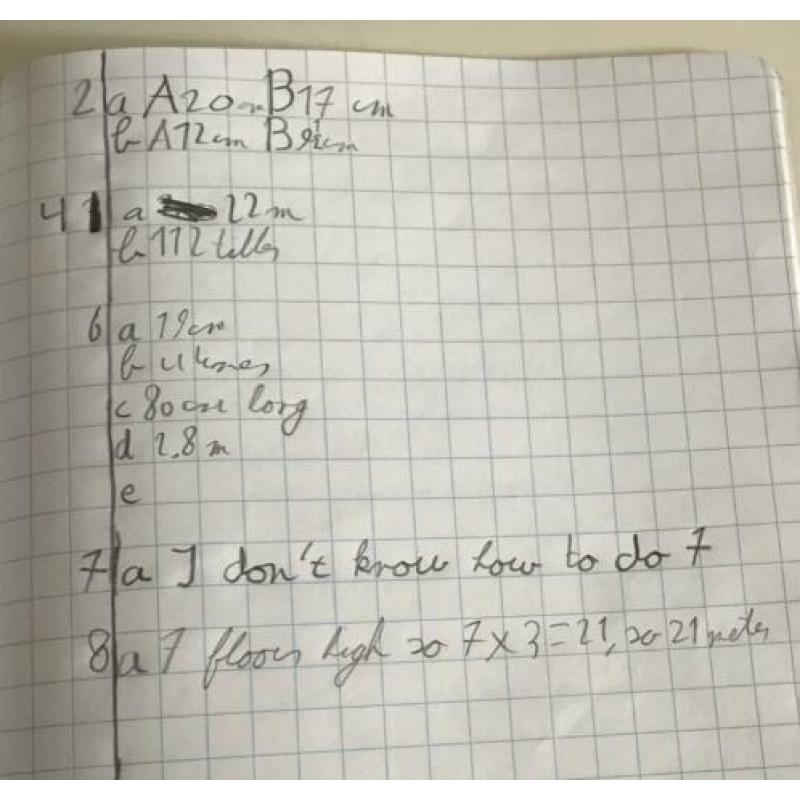 2 a A 20 cm B 17 cm
b A 12 cm B cm
4 a 22 m
b 112 telles
6 a 19 cm
b 4 times
c 80 cm long
d 2.8 m
e
7 a I don't know how to do 7
8 a 7 floors high so 7 x 3 = 21, so 21 meters